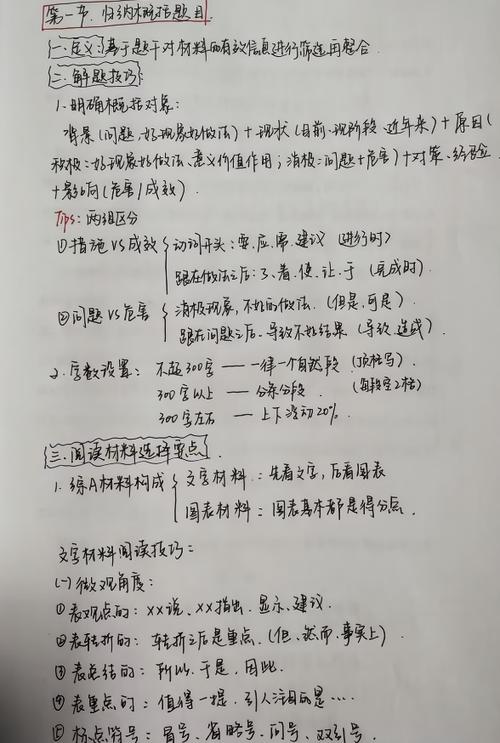 第一节. 归纳概括题目.
一、定义: 基于题干对材料的有效信息进行筛选再整合.
二、解题技巧:
1. 明确概括对象:
背景(问题、好现象好做法)+现状(目前、现阶段、近年来)+原因(
积极:好现象好做法、意义价值作用;消极:问题+危害)+对策、经验
+影响(危害/成效).
Tips: 两组区分
①措施VS成效 动词开头:要、应、需、建议 (进行时)
跟在做法之后:了、着、使、让、于 (完成时).
②问题VS危害 消极现象,不好的做法. (但是,可是)
跟在问题之后、导致不好结果 (导致、造成)
2. 字数设置: 不超300字 — 一律一个自然段 (顶格写)
300字以上 — 分条分段. (每段空2格)
300字左右 — 上下浮动20%.
三、阅读材料选择要点.
1. 综A材料构成 文字材料:先看文字,后看图表
图表材料:图表基本都是得分点.
文字材料阅读技巧:
(一)微观角度:
①表观点的:XX说、XX指出、显示、建议.
②表转折的:转折之后是重点.(但、然而、事实上).
③表总结的:所以、于是、因此.
④表重点的:值得一提、引人注目的是….
⑤标点符号:冒号、省略号、问号、双引号.